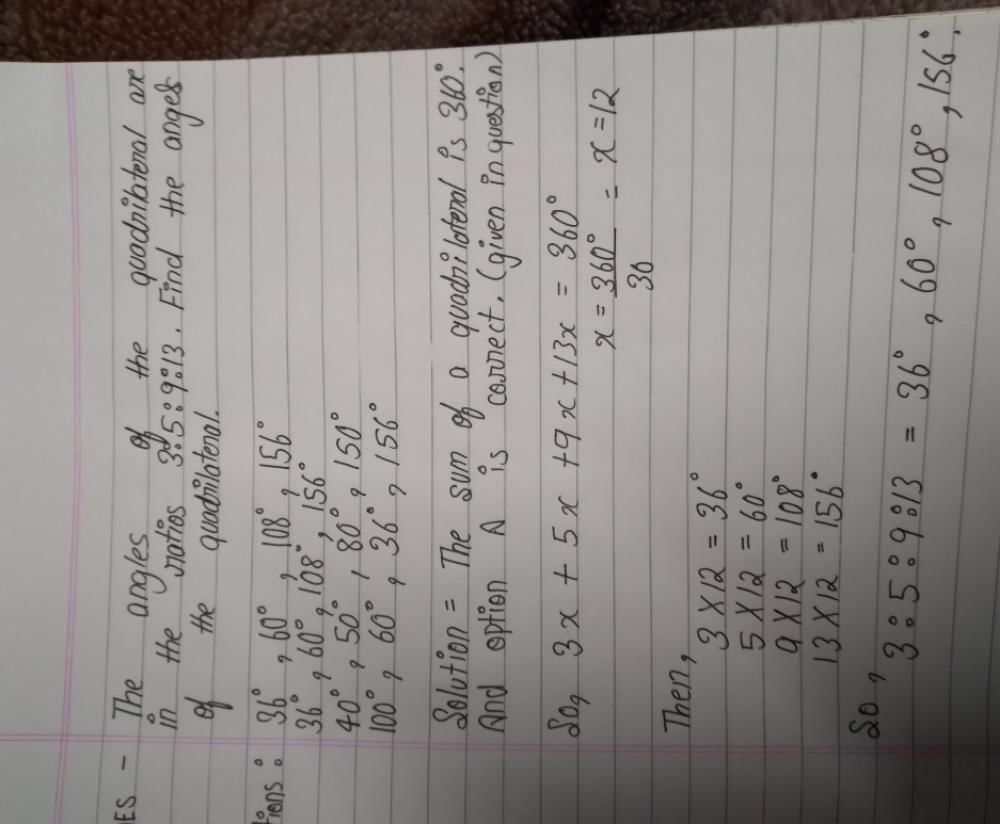 ES - The angles of the quadrilateral are
in the ratios 3:5:9:13. Find the anges
of the quadrilateral.
tions: 36°, 60°, 108°, 156°
36°, 60°, 108°, 156°
40°, 50°, 80°, 150°
100°, 60°, 36°, 156°
Solution = The sum of a quadrilateral is 360°.
And option A is correct. (given in question)
So, 3x + 5x + 9x + 13x = 360°
x = 360°/30 = x = 12
Then,
3 X 12 = 36°
5 X 12 = 60°
9 X 12 = 108°
13 X 12 = 156°
So,
3:5:9:13 = 36°, 60°, 108°, 156°.